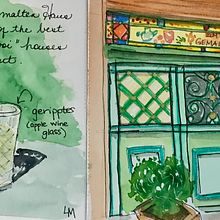 malten Haus
of the best
oi" houses
ect.
geripptes
(apple wine
glass)
LM
GEMAL